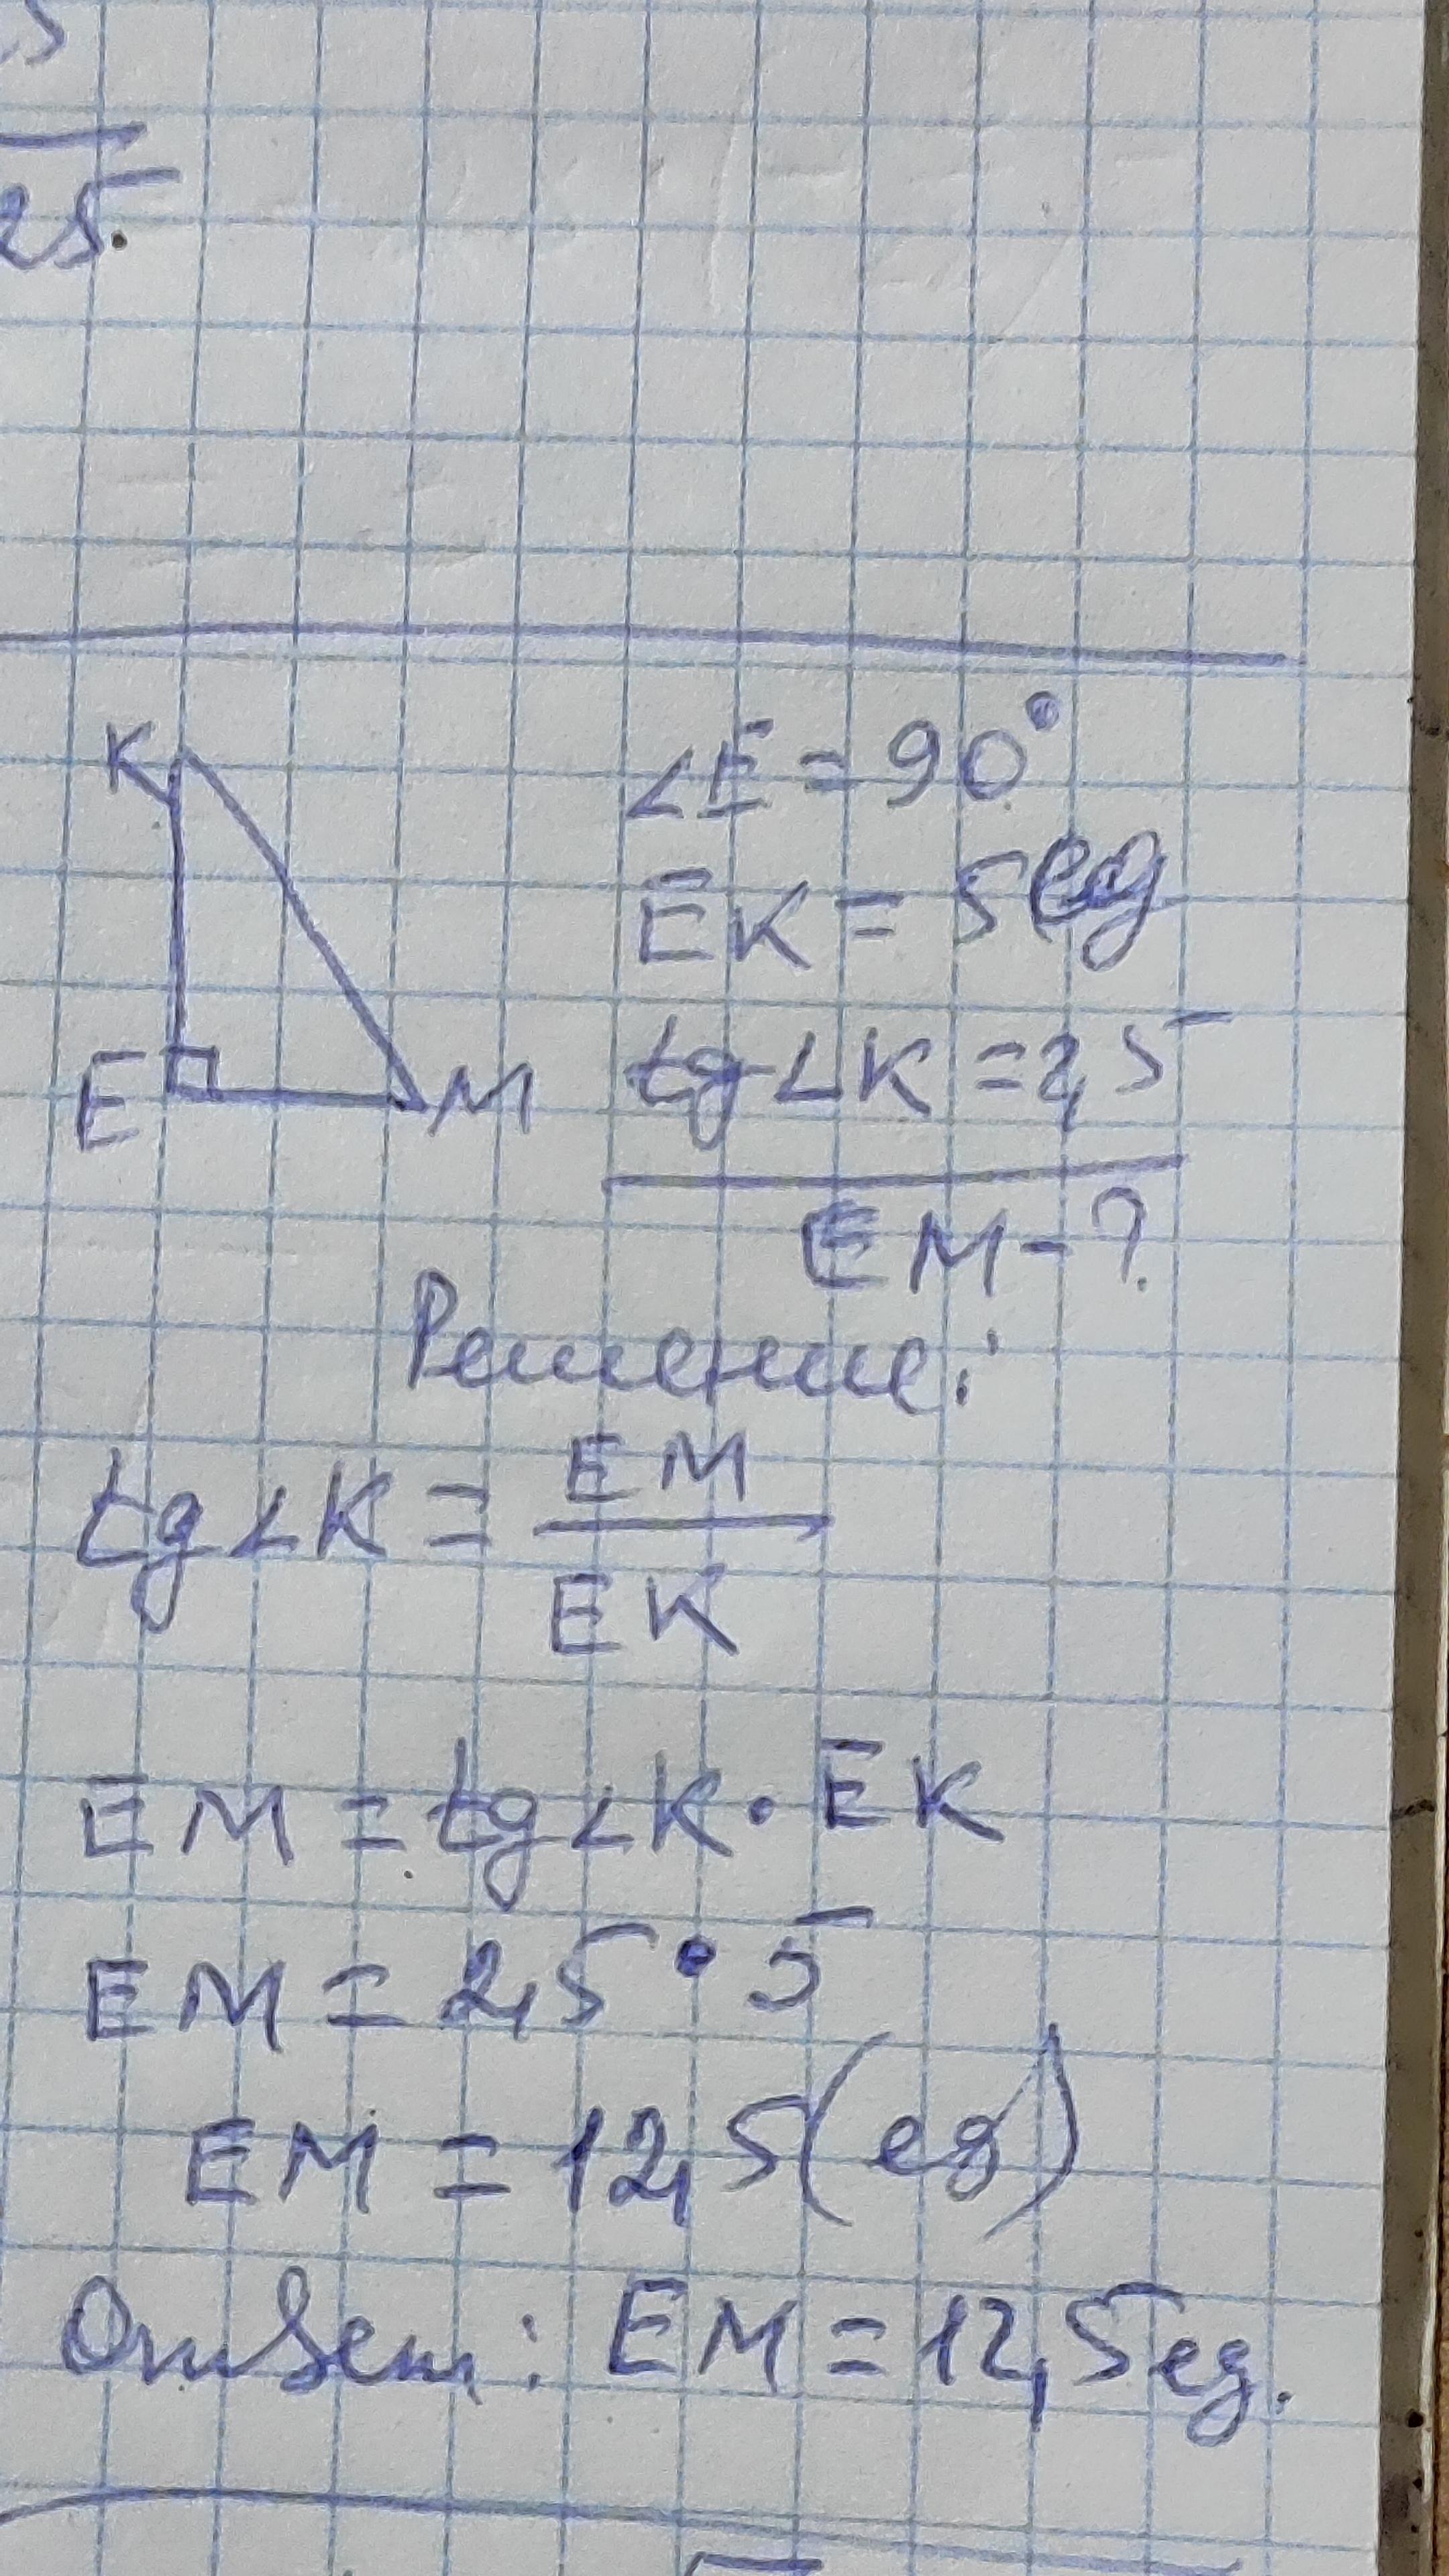 25.
K
∠E = 90°
EK = 5 ед
E
M
tg∠K = 2,5
EM - ?
Решение:
tg∠K = EM
EK
EM = tg∠K · EK
EM = 2,5 · 5
EM = 12,5 (ед)
Ответ: EM = 12,5 ед.